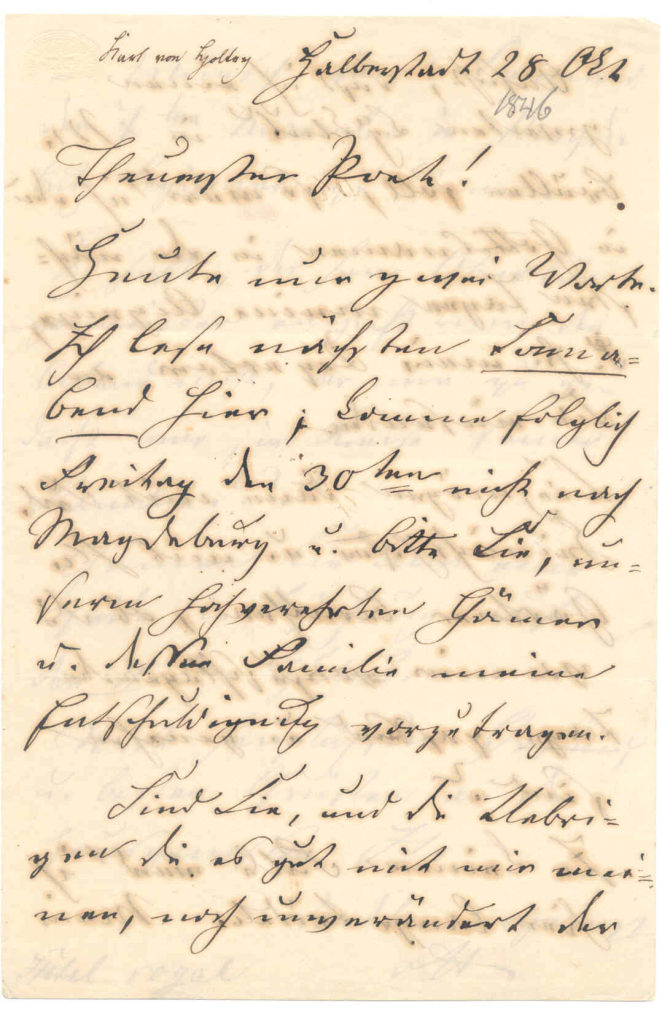 Karl von Holtey
Halberstadt 28 Okt
1846
Theuerster Poet!
Heute nur zwei Worte.
Ich lese nächsten Sonna=
bend hier; komme folglich
Freitag den 30ten nicht nach
Magdeburg u. bitte Sie, un=
serm hochverehrten
u. dessen Familie meine
Entschuldigung vorzutragen.
Sind Sie, und die Uebri=
gen die es gut mit mir mei=
nen, noch unverändert der